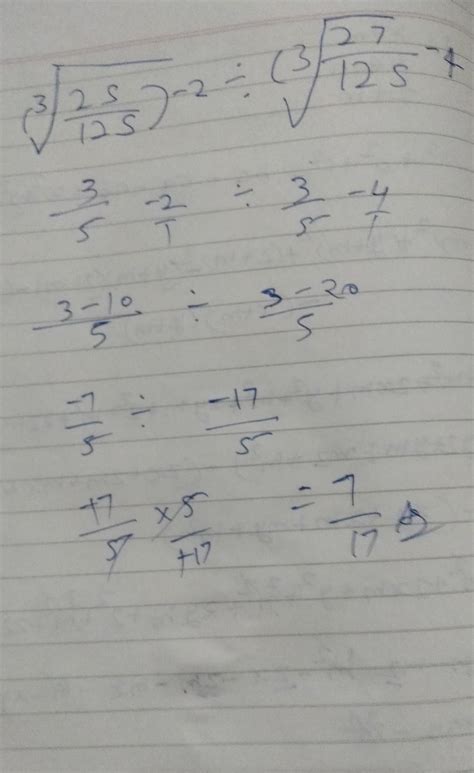 (∛(25/125))-2 ÷ (∛(27/125)-4
3/5 -2/1 ÷ 3/5 -4/1
3-10/5 ÷ 3-20/5
-7/5 ÷ -17/5
+7/5 × 5/+17 = 7/17